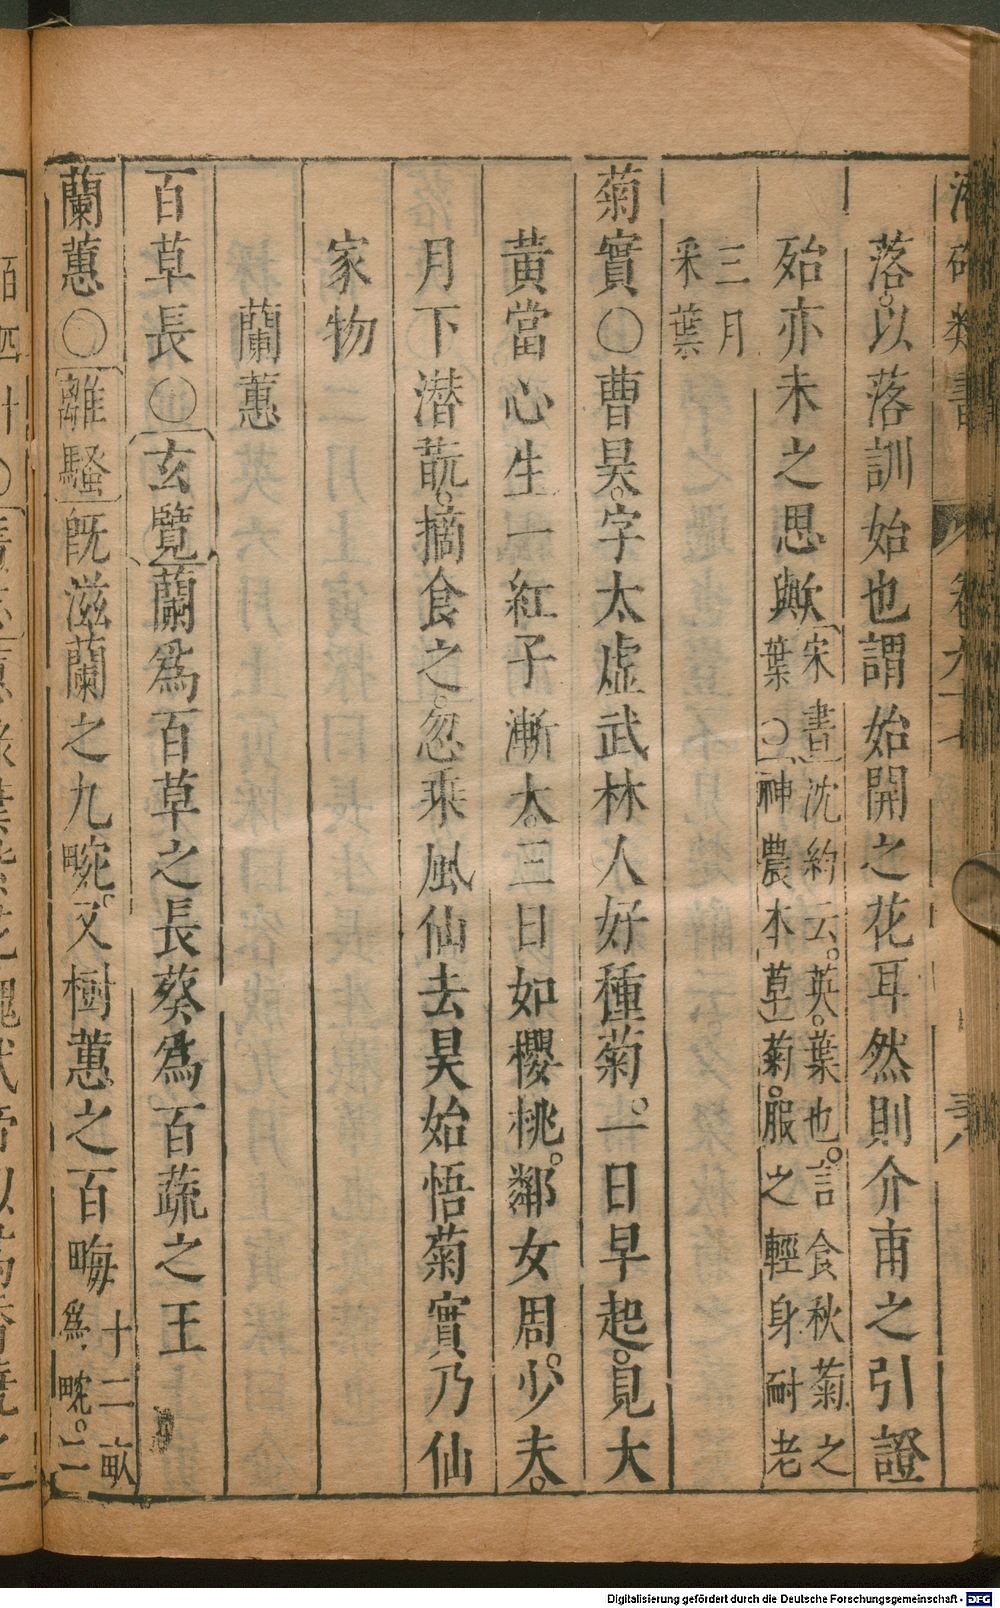 落以落訓始也謂始開之花耳然則介甫之引證
殆亦未之思歟宋書沈約云英葉也言食秋菊之
葉〇神農本草菊服之輕身耐老
三月
采葉
菊實〇曹昊字太虛武林人好種菊一日早起見大
黃當心生一紅子漸大三日如櫻桃鄰女周少夫
月下潛翫摘食之忽乘風仙去昊始悟菊實乃仙
家物
蘭蕙
百草長〇玄覽蘭爲百草之長葵爲百蔬之王
蘭蕙〇離騷既滋蘭之九畹又樹蕙之百畮十二畝
爲畹二
Digitalisierung gefördert durch die Deutsche Forschungsgemeinschaft - DFG